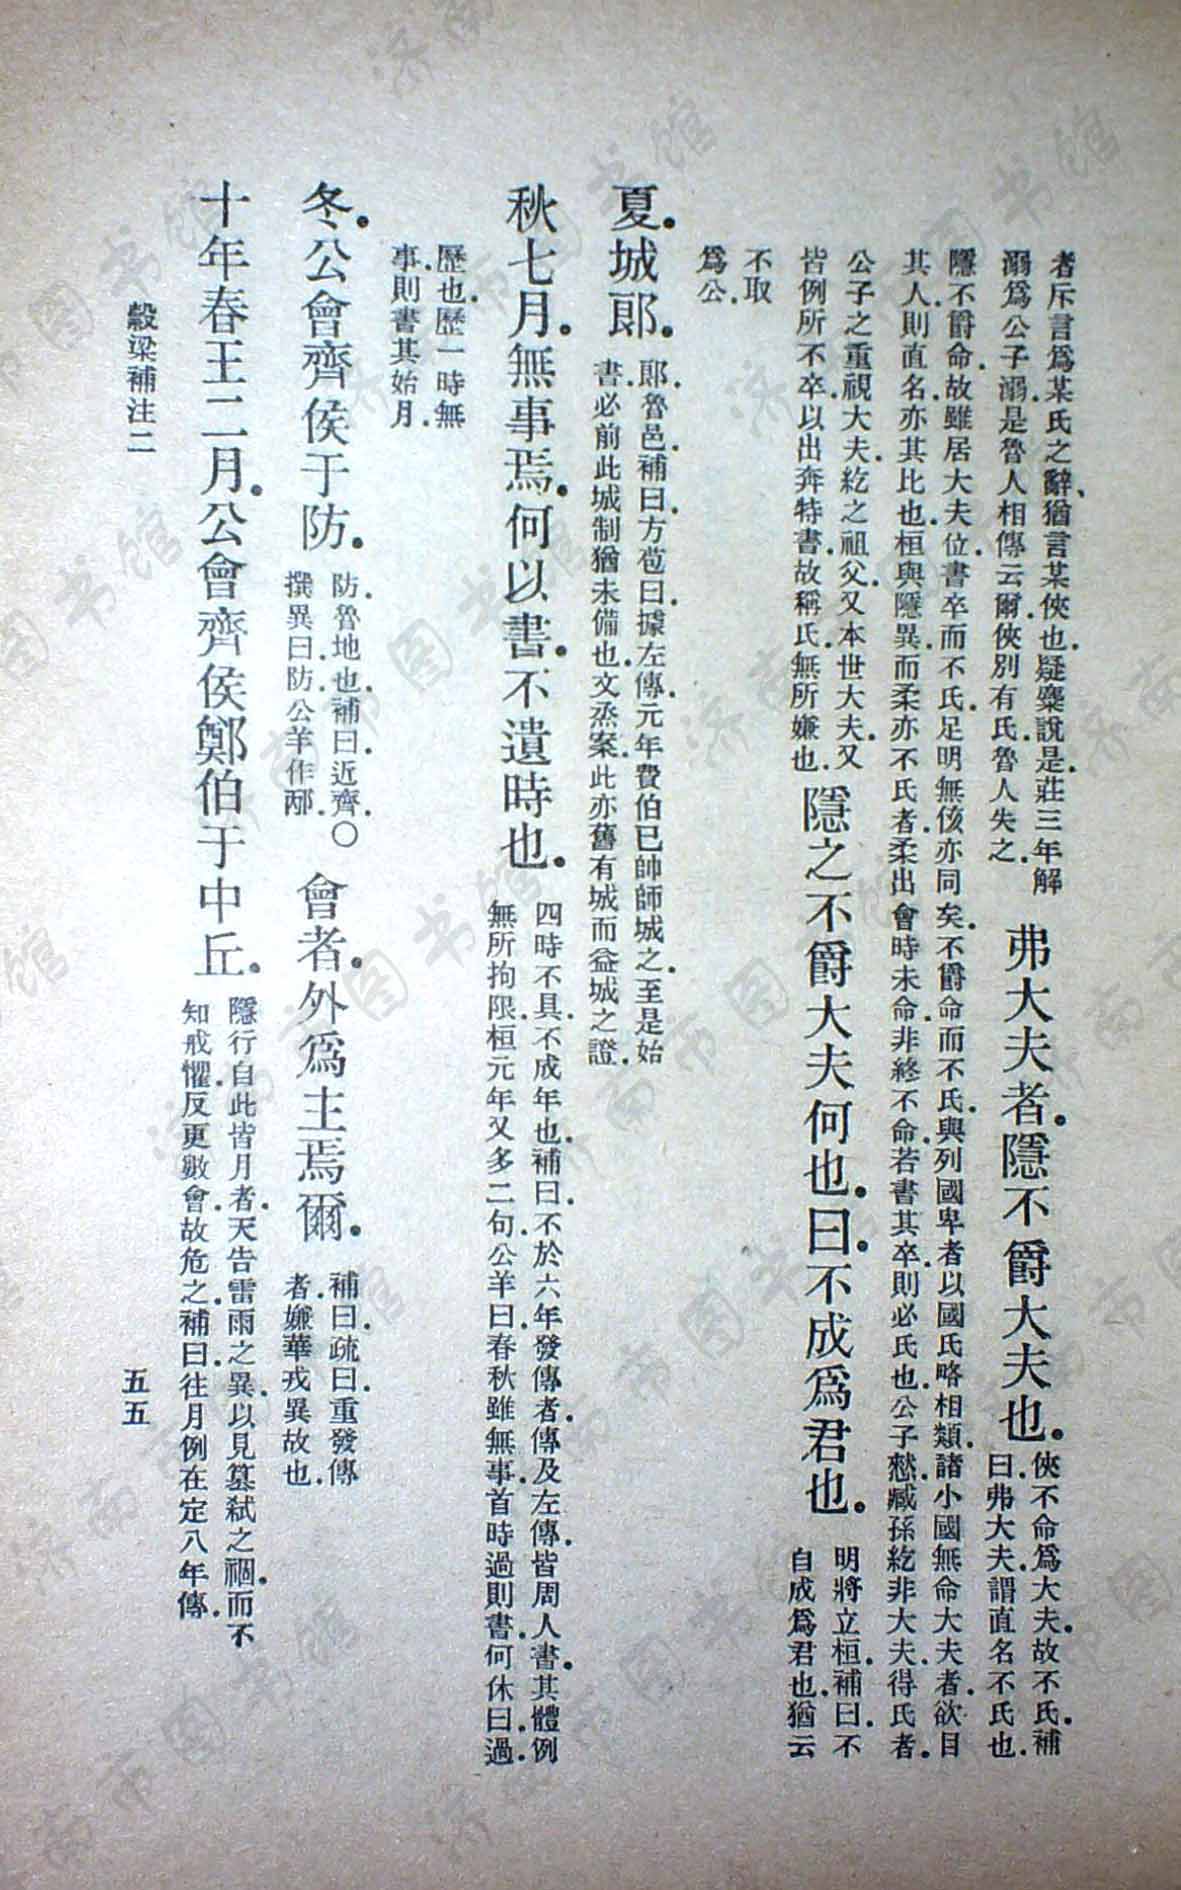 者斥言爲某氏之辭、猶言某俠也．疑麋說是．莊三年解
溺爲公子溺．是魯人相傳云爾．俠別有氏．魯人失之．
弗大夫者．隱不爵大夫也．
俠不命爲大夫．故不氏．補
曰．弗大夫．謂直名不氏也．
隱不爵命．故雖居大夫位．書卒而不氏．足明無侅亦同矣．不爵命而不氏．與列國卑者以國氏略相類．諸小國無命大夫者．欲目
其人．則直名．亦其比也．桓與隱異．而柔亦不氏者．柔出會時未命．非終不命．若書其卒．則必氏也．公子憖臧孫紇非大夫．得氏者．
公子之重視大夫．紇之祖父又本世大夫．又
皆例所不卒．以出奔特書．故稱氏．無所嫌也．
隱之不爵大夫何也．曰．不成爲君也．
明將立桓．補曰．不
自成爲君也．猶云
不取
爲公．
夏．城郎．
郎．魯邑．補曰．方苞曰．據左傳．元年費伯已帥師城之．至是始
書．必前此城制猶未備也．文烝案．此亦舊有城而益城之證．
秋七月．無事焉．何以書．不遺時也．
四時不具．不成年也．補曰．不於六年發傳者．傳及左傳皆周人書．其體例
無所拘限．桓元年又多二句．公羊曰．春秋雖無事．首時過則書．何休曰．過．
歷也．歷一時無
事．則書其始月．
冬．公會齊侯于防．
防．魯地也．補曰．近齊．○
撰異曰．防．公羊作邴．
會者．外爲主焉爾．
補曰．疏曰．重發傳
者．嫌華戎異故也．
十年春王二月．公會齊侯鄭伯于中丘．
隱行自此皆月者．天告雷雨之異．以見篡弒之禍．而不
知戒懼．反更數會．故危之．補曰．往月例在定八年傳．
穀梁補注二
五五